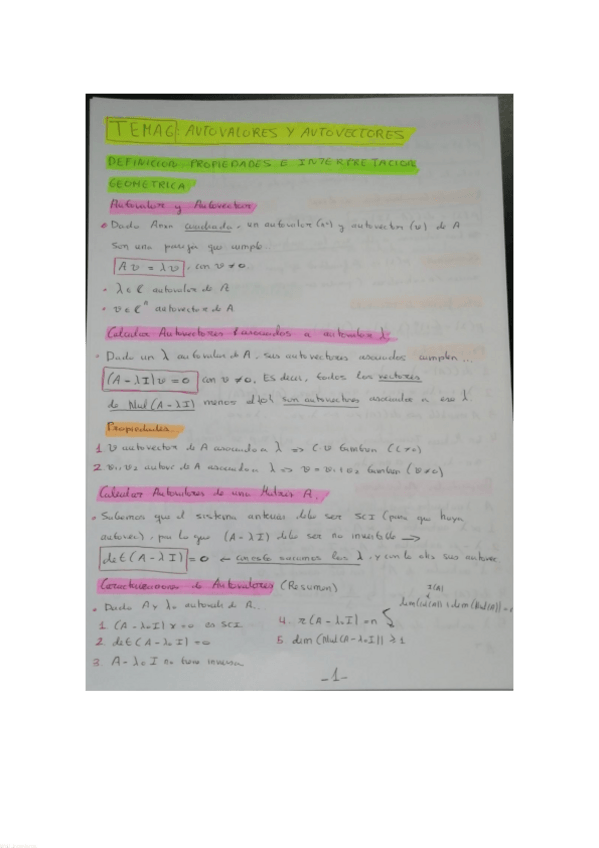 TEMA 6: AUTOVALORES Y AUTOVECTORES
DEFINICION, PROPIEDADES E INTERPRETACION
GEOMETRICA
Autovalor y Autovector
• Dada Anxn cuadrada, un autovalor y autovector (v) de A
son una pareja que cumple...
Av = λv, con v ≠ 0
• λ ∈ C autovalor de A
• v ∈ Cⁿ autovector de A
Calcular Autovectores asociados a autovalor λ
• Dado un λ autovalor de A, sus autovectores asociados cumplen...
(A - λI)v = 0 con v ≠ 0. Es decir, todos los vectores
de Nul(A - λI) menos el son autovectores asociados a ese λ.
Propiedades...
1 v autovector de A asociado a λ => C·v tambien (C ≠ 0)
2 v1, v2 autovec de A asociados a λ => v = v1 + v2 tambien (v ≠ 0)
Calcular Autovalores de una Matriz A.
• Sabemos que el sistema anterior debe ser SCI (para que haya
autovec), por lo que (A - λI) debe ser no invertible →
det(A - λI) = 0 ← con esto sacamos los λ, y con lo otro sus autovec
Caracterizaciones de Autovalores (Resumen)
• Dada A y λ₀ autovalor de A...
1. (A - λ₀I)x = 0 es SCI
2. det(A - λ₀I) = 0
3. A - λ₀I no tiene inversa
4. r(A - λ₀I) ≠ n
r(A)
dim(Col(A)) + dim(Nul(A)) = n
5. dim(Nul(A - λ₀I)) ≥ 1
-1-